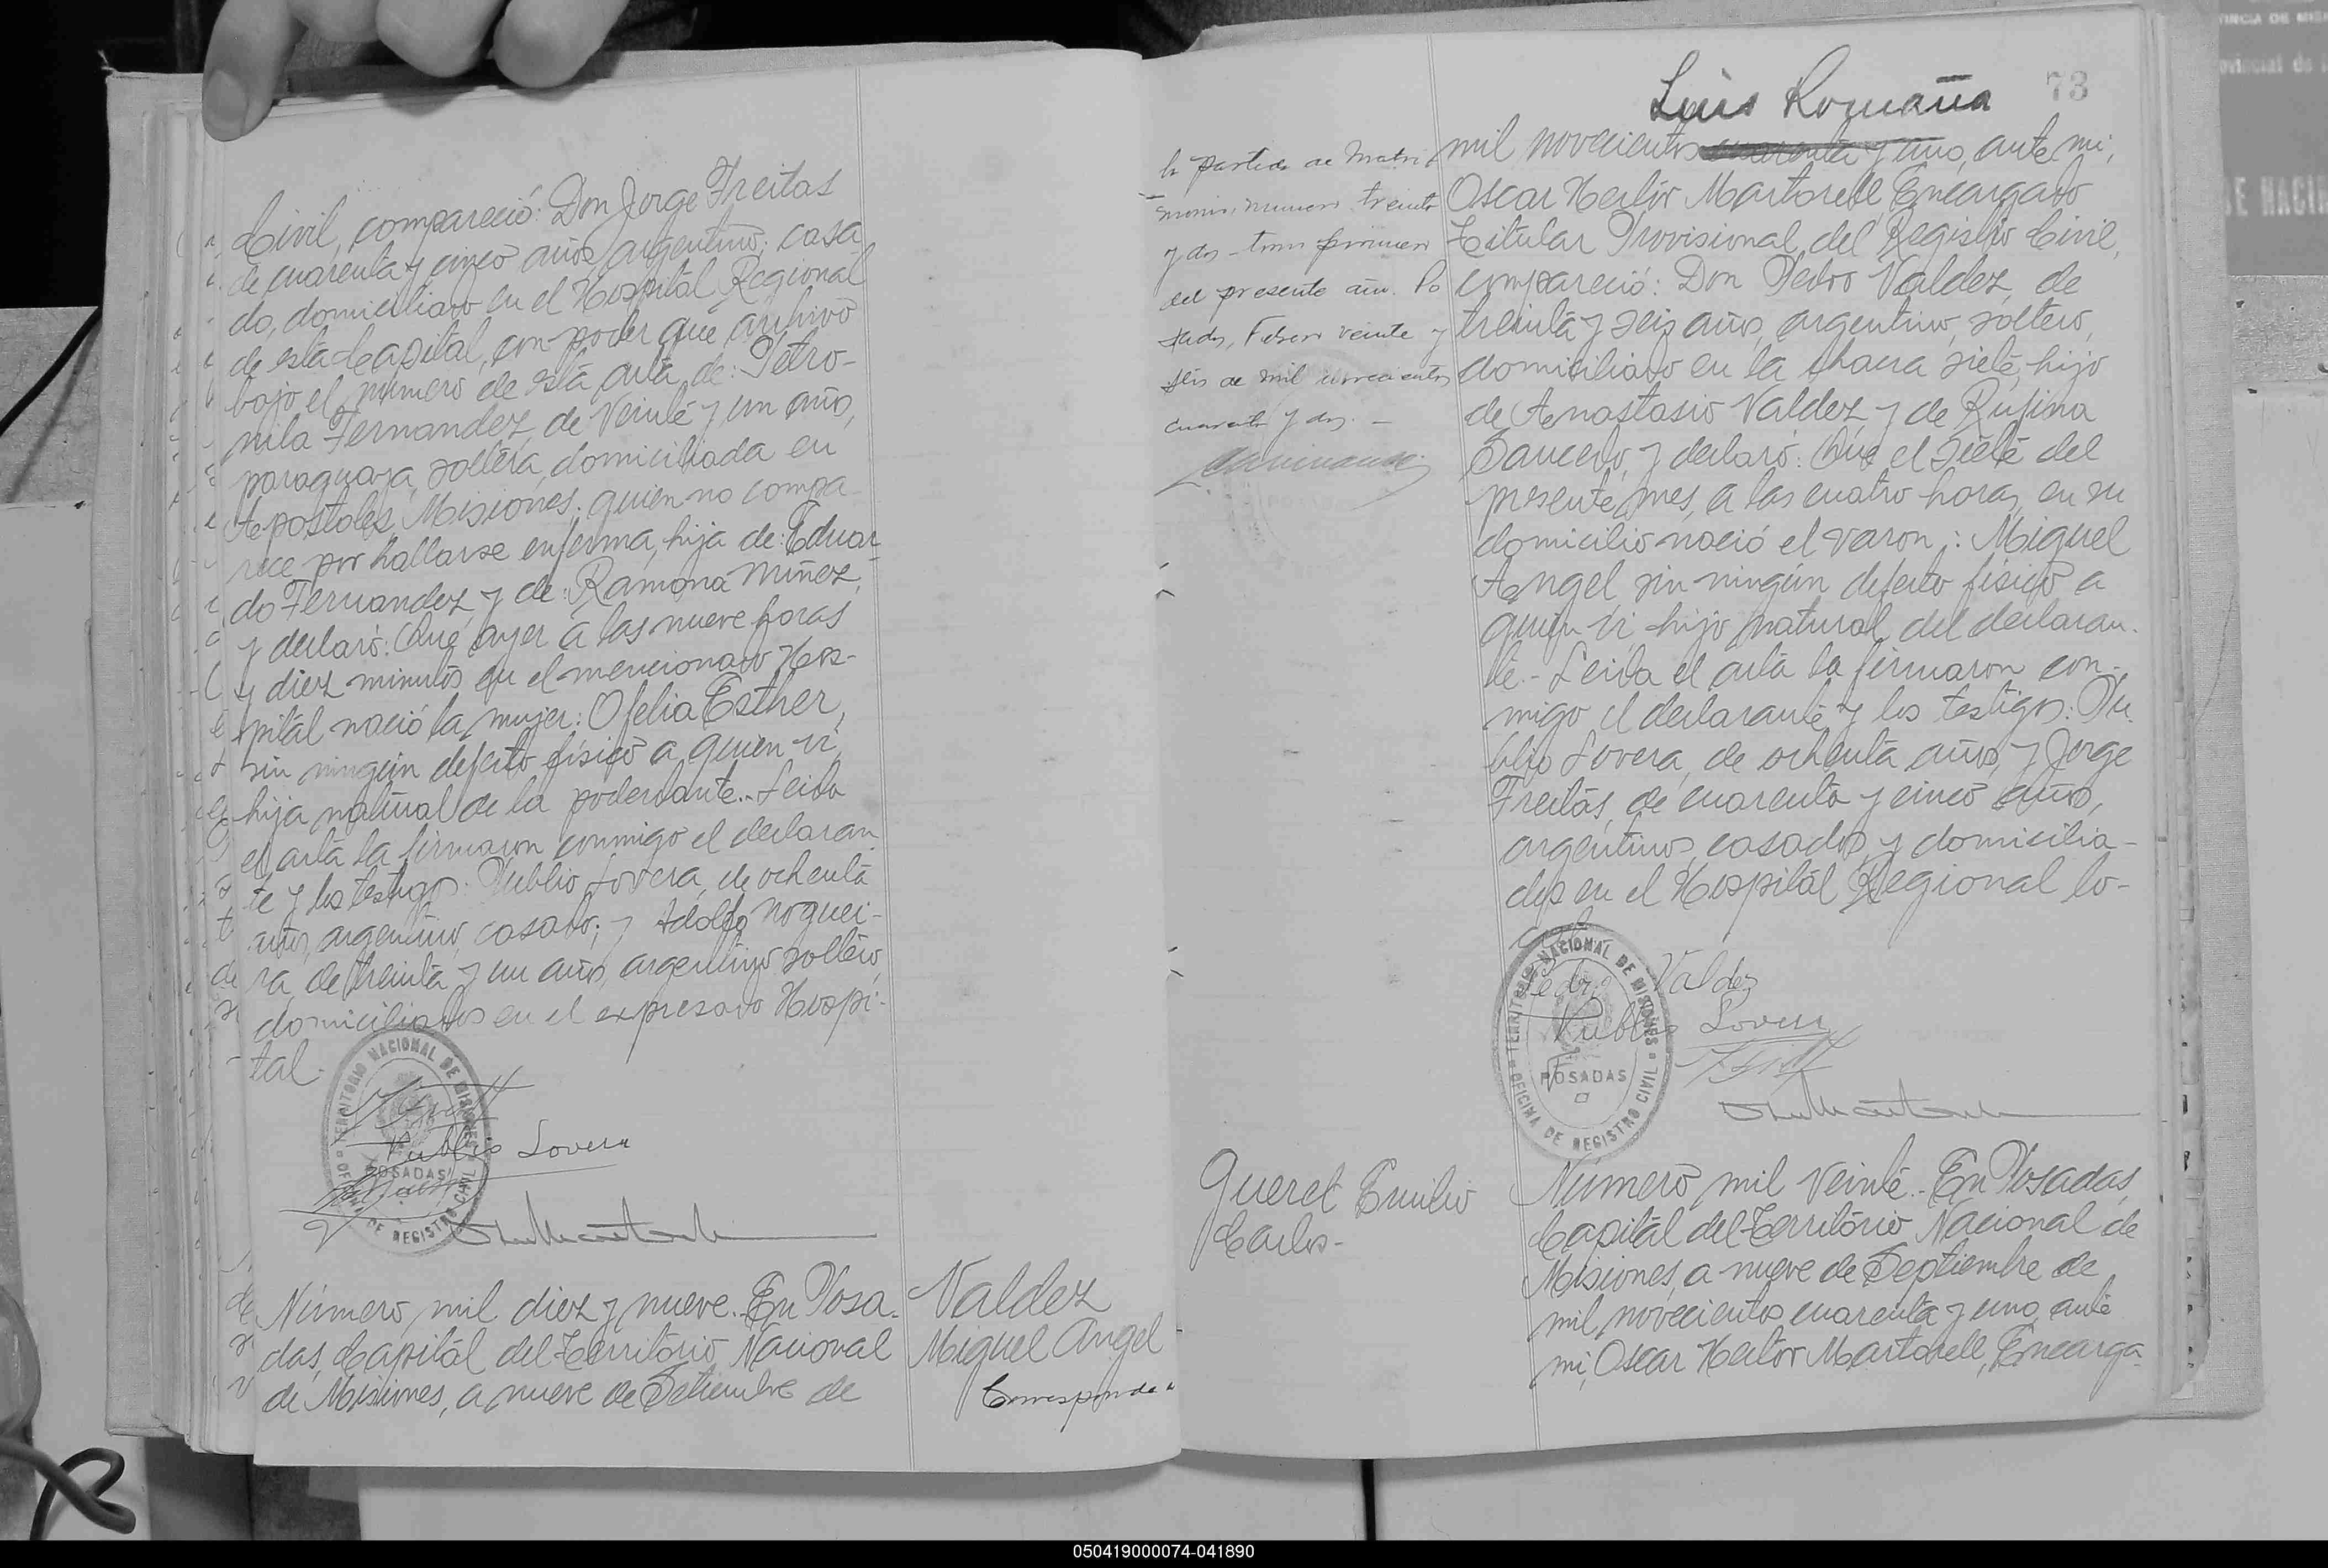 Civil, compareció: Don Jorge Freitas
de cuarenta y cinco años, argentino, casa
do, domiciliado en el Hospital Regional
de esta Capital, con poder que archivo
bajo el número de esta acta de: Petro-
nila Fernandez, de veinte y un año,
paraguaya, soltera, domiciliada en
Apostoles, Misiones, quien no compa
rece por hallarse enferma, hija de: Eduar
do Fernandez y de: Ramona Miñoz,
y declaró: Que ayer a las nueve horas
y diez minutos en el mencionado Hos-
pital nació la mujer: Ofelia Esther,
sin ningún defecto físico a quien vi,
hija natural de la poderdante.. Leida
el acta la firmaron conmigo el declaran
te y los testigos: Publio Lovera, de ochenta
años, argentino, casado; y Adolfo Noguei-
ra, de treinta y un años, argentino soltero,
domiciliados en el expresado Hospi-
tal.
TERRITORIO NACIONAL DE MISIONES
POSADAS
OFICINA DE REGISTRO CIVIL
Publio Lovera
Número mil diez y nueve. En Posa-
das, Capital del Territorio Nacional
de Misiones, a nueve de Setiembre de
Valdez
Miguel Angel
Corresponde a
73
Luis Romaña
la partida de Matri
monio, numero treinta
y dos - tomo primero
del presente año. Po
sadas, Febrero veinte y
seis de mil novecientos
cuarenta y dos. -
mil novecientos cuarenta y uno, ante mi,
Oscar Hector Martorell, Encargado
Titular Provisional del Registro Civil,
compareció: Don Pedro Valdez, de
treinta y seis años, argentino, soltero,
domiciliado en la chacra siete, hijo
de Anastasio Valdez y de Rufina
Saucedo, y declaró: Que el siete del
presente mes, a las cuatro horas, en su
domicilio nació el varon: Miguel
Angel sin ningún defecto físico a
quien vi hijo natural del declaran-
te.- Leida el acta la firmaron con-
migo el declarante y los testigos: Pu-
blio Lovera, de ochenta años, y Jorge
Freitas, de cuarenta y cinco años,
argentinos, casados y domicilia-
dos en el Hospital Regional lo-
cal.
TERRITORIO NACIONAL DE MISIONES
POSADAS
OFICINA DE REGISTRO CIVIL
Pedro Valdez
Publio Lovera
Queret Emilio
Carlos-
Número mil veinte.. En Posadas,
Capital del Territorio Nacional de
Misiones, a nueve de Septiembre de
mil novecientos cuarenta y uno, ante
mi, Oscar Hector Martorell, Encarga-
050419000074-041890